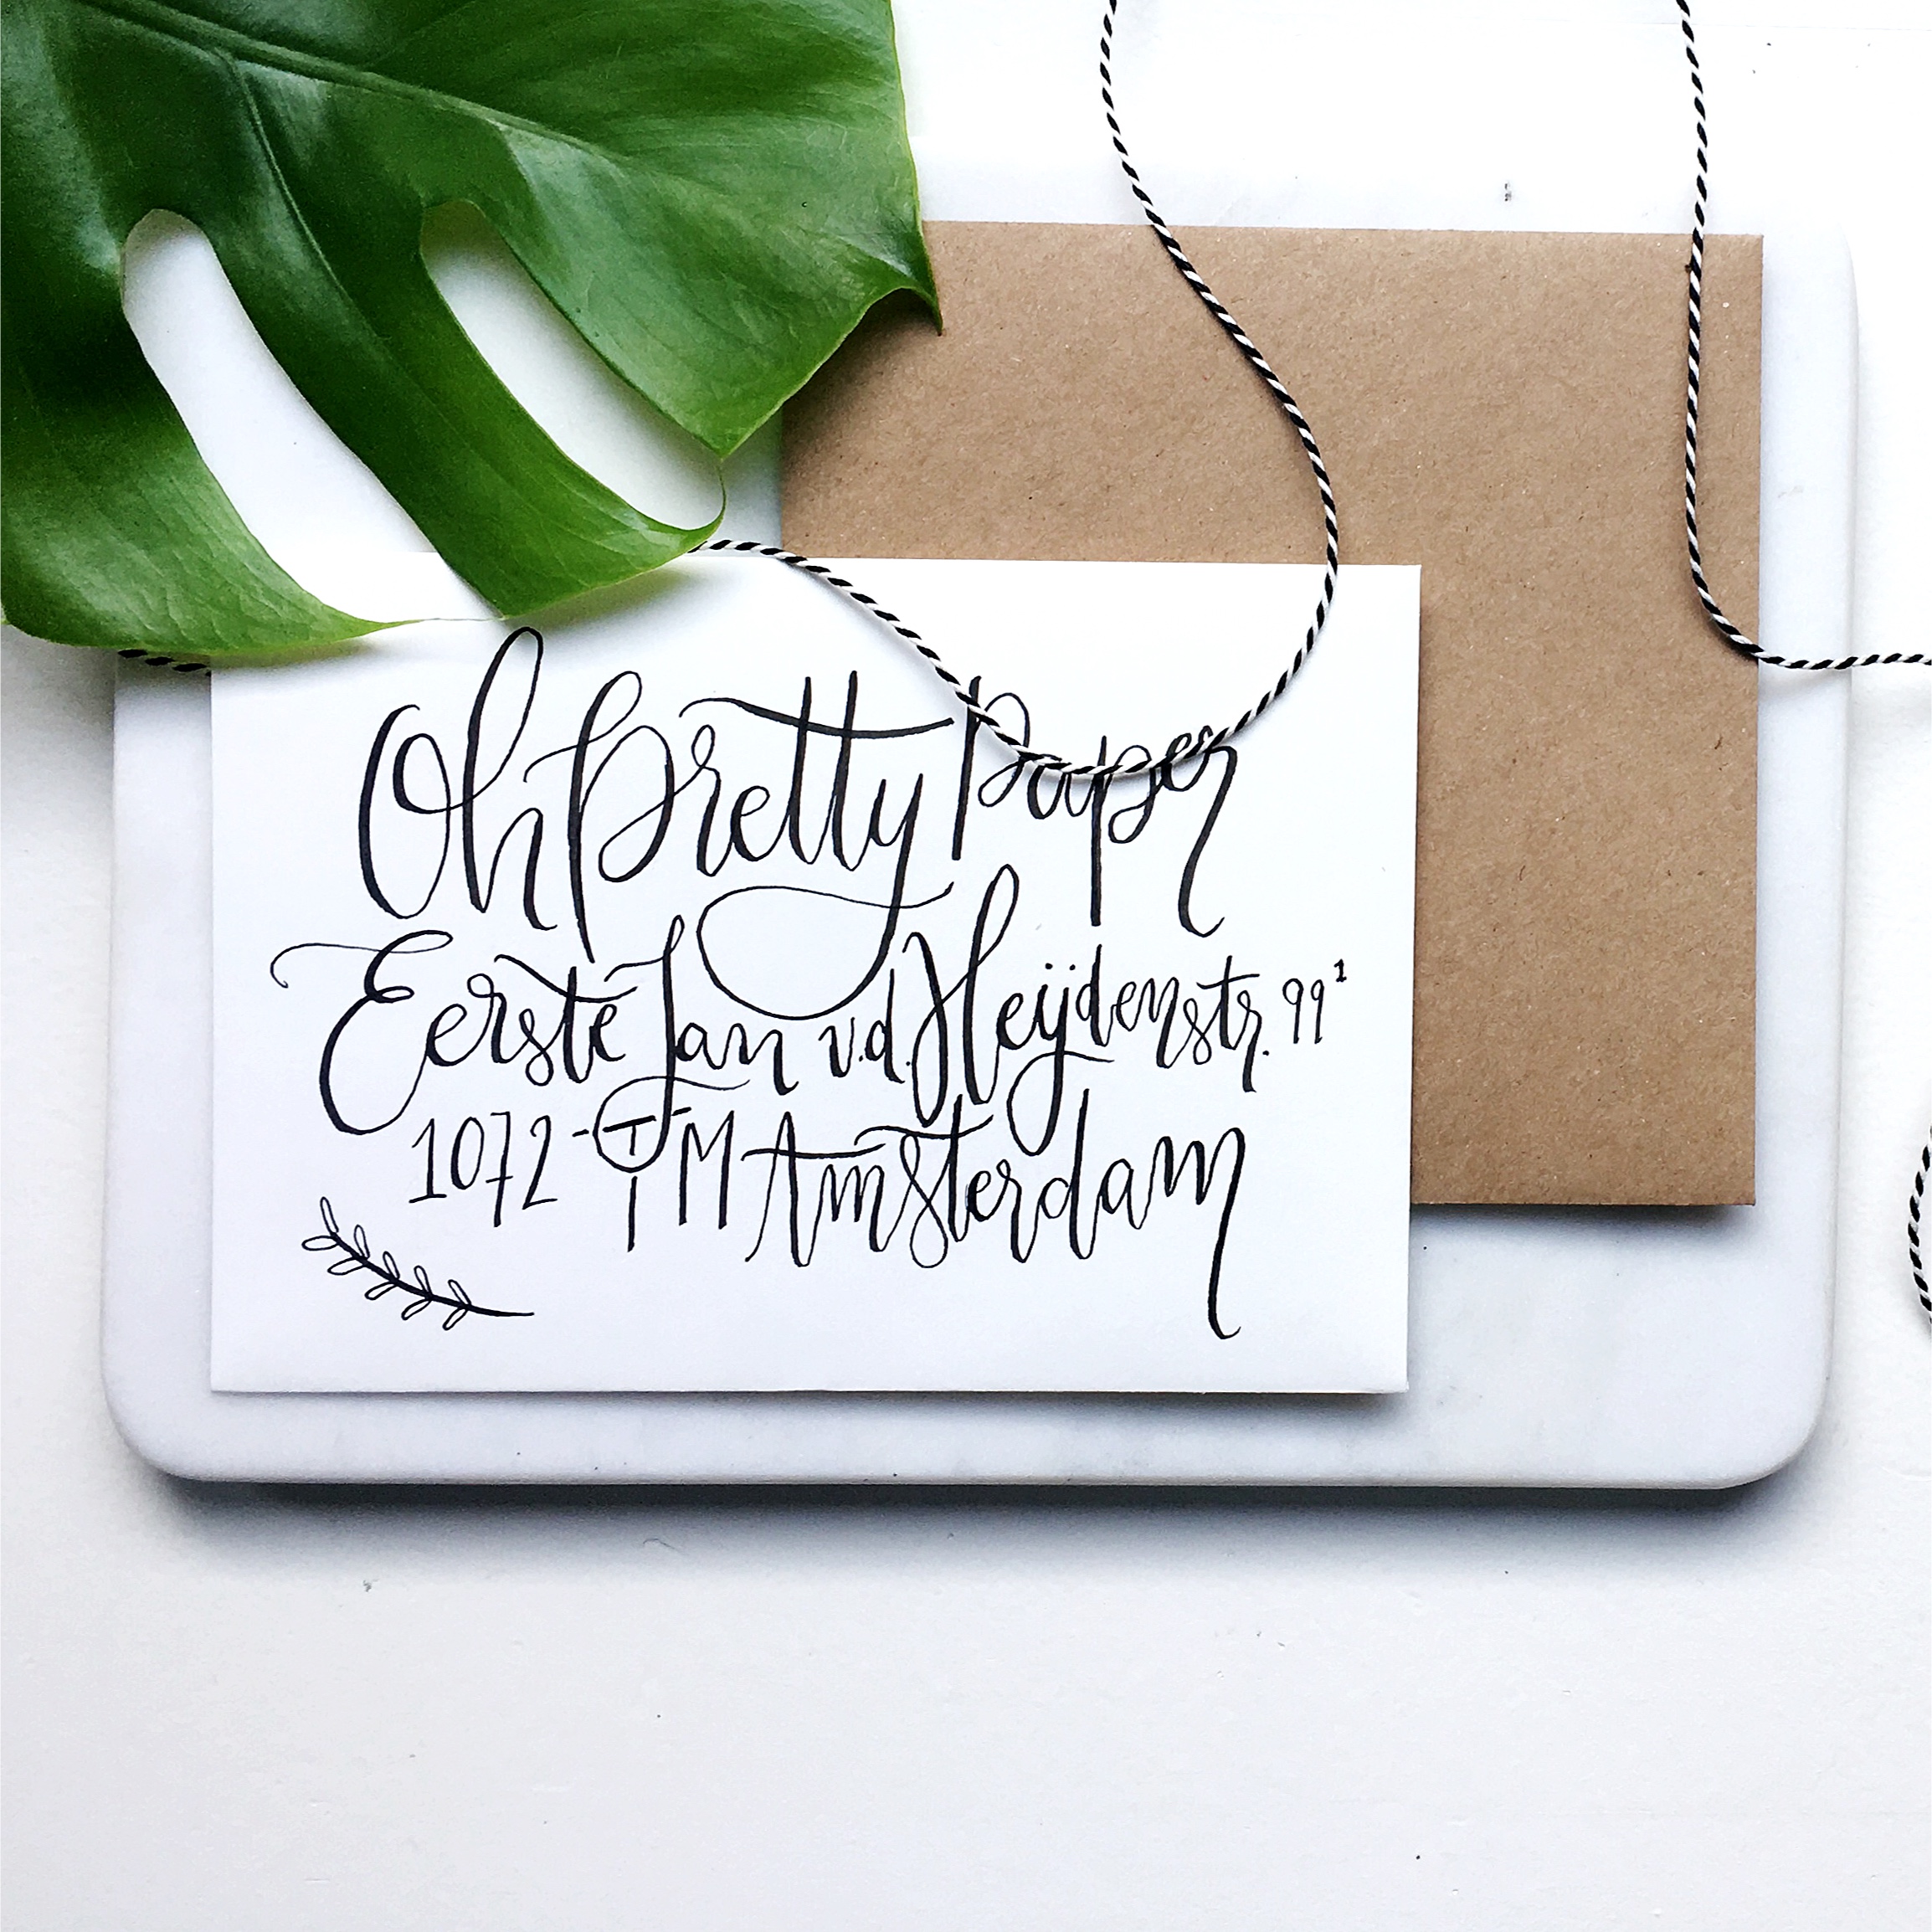 Oh Pretty Paper
Eerste Jan v.d. Heijdenstr. 99¹
1072-TM Amsterdam